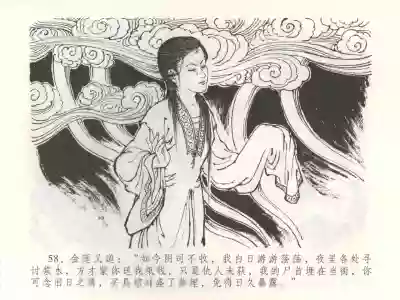 58. 金莲又道："如今阴司不收，我白日游游荡荡，夜里各处寻
讨浆水，方才蒙你送我纸钱，只是仇人未获，我的尸首埋在当街，你
可念旧日之情，买具棺材盛了掩埋，免得日久暴露。"